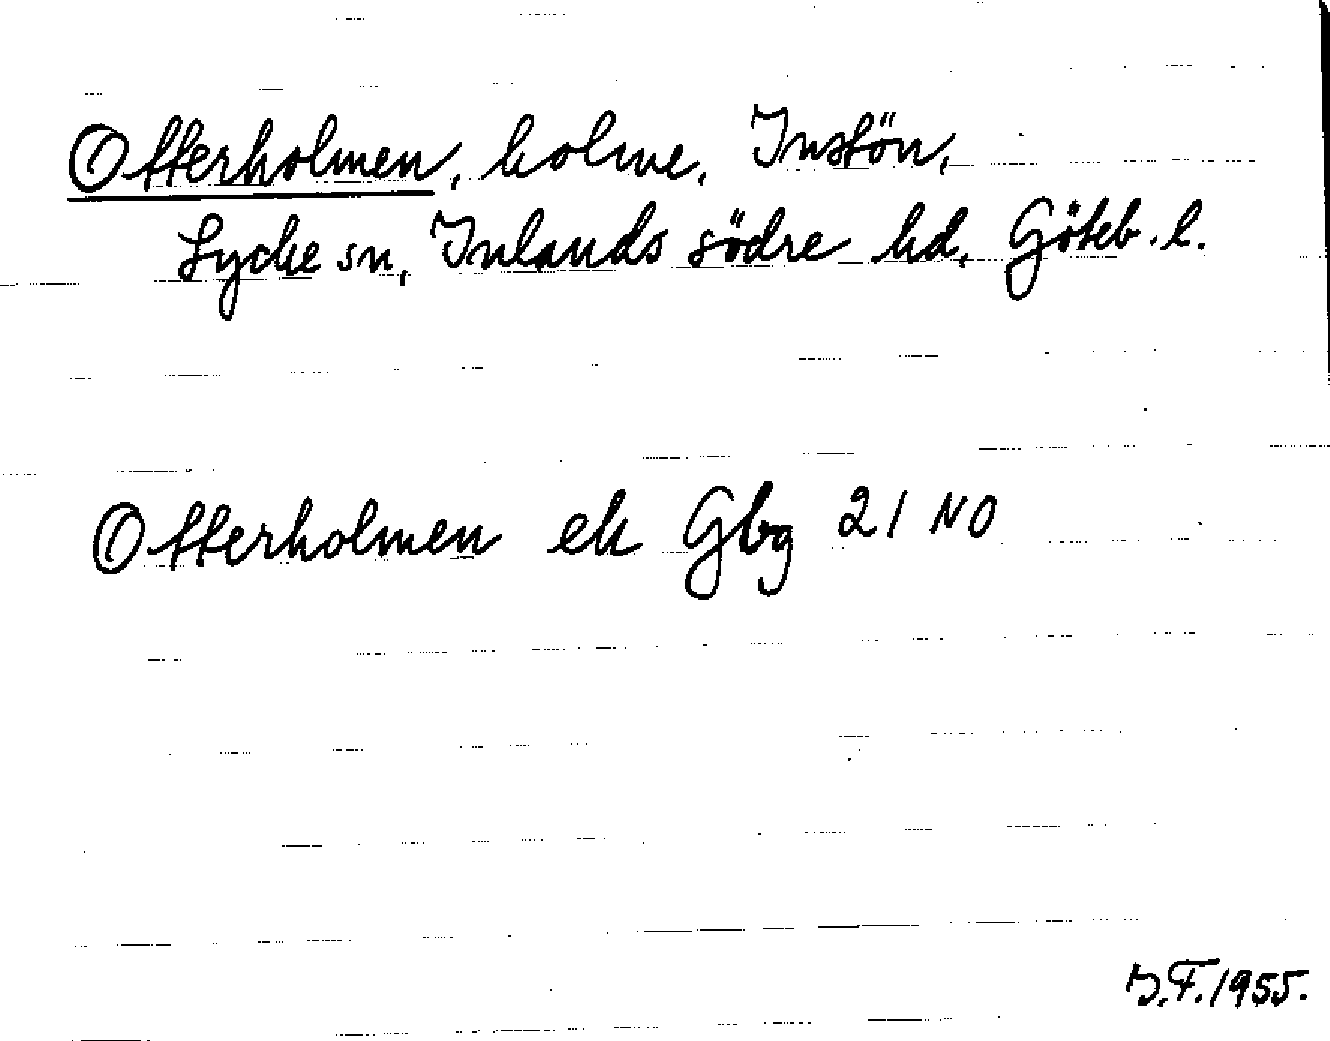 Otterholmen, holme, Instön,
Lycke sn, Inlands södre hd, Göteb. l.
Otterholmen ek Gbg 21 NO
I.F. 1955.